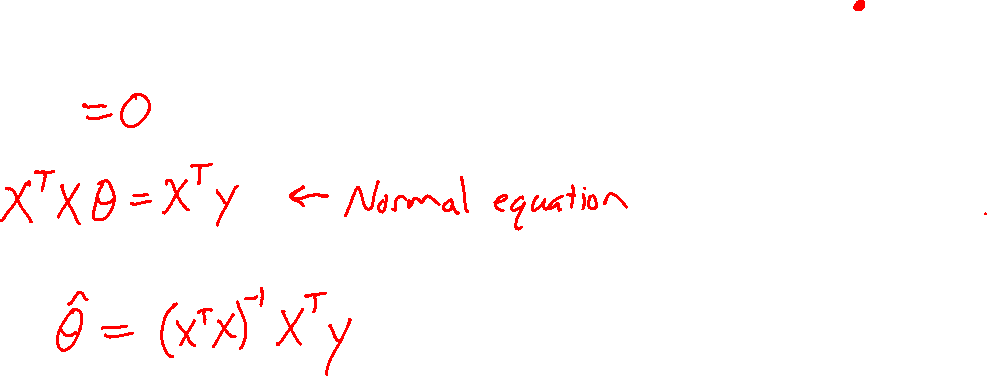 = 0
X^T X θ = X^T y ← Normal equation
θ̂ = (X^T X)^-1 X^T y